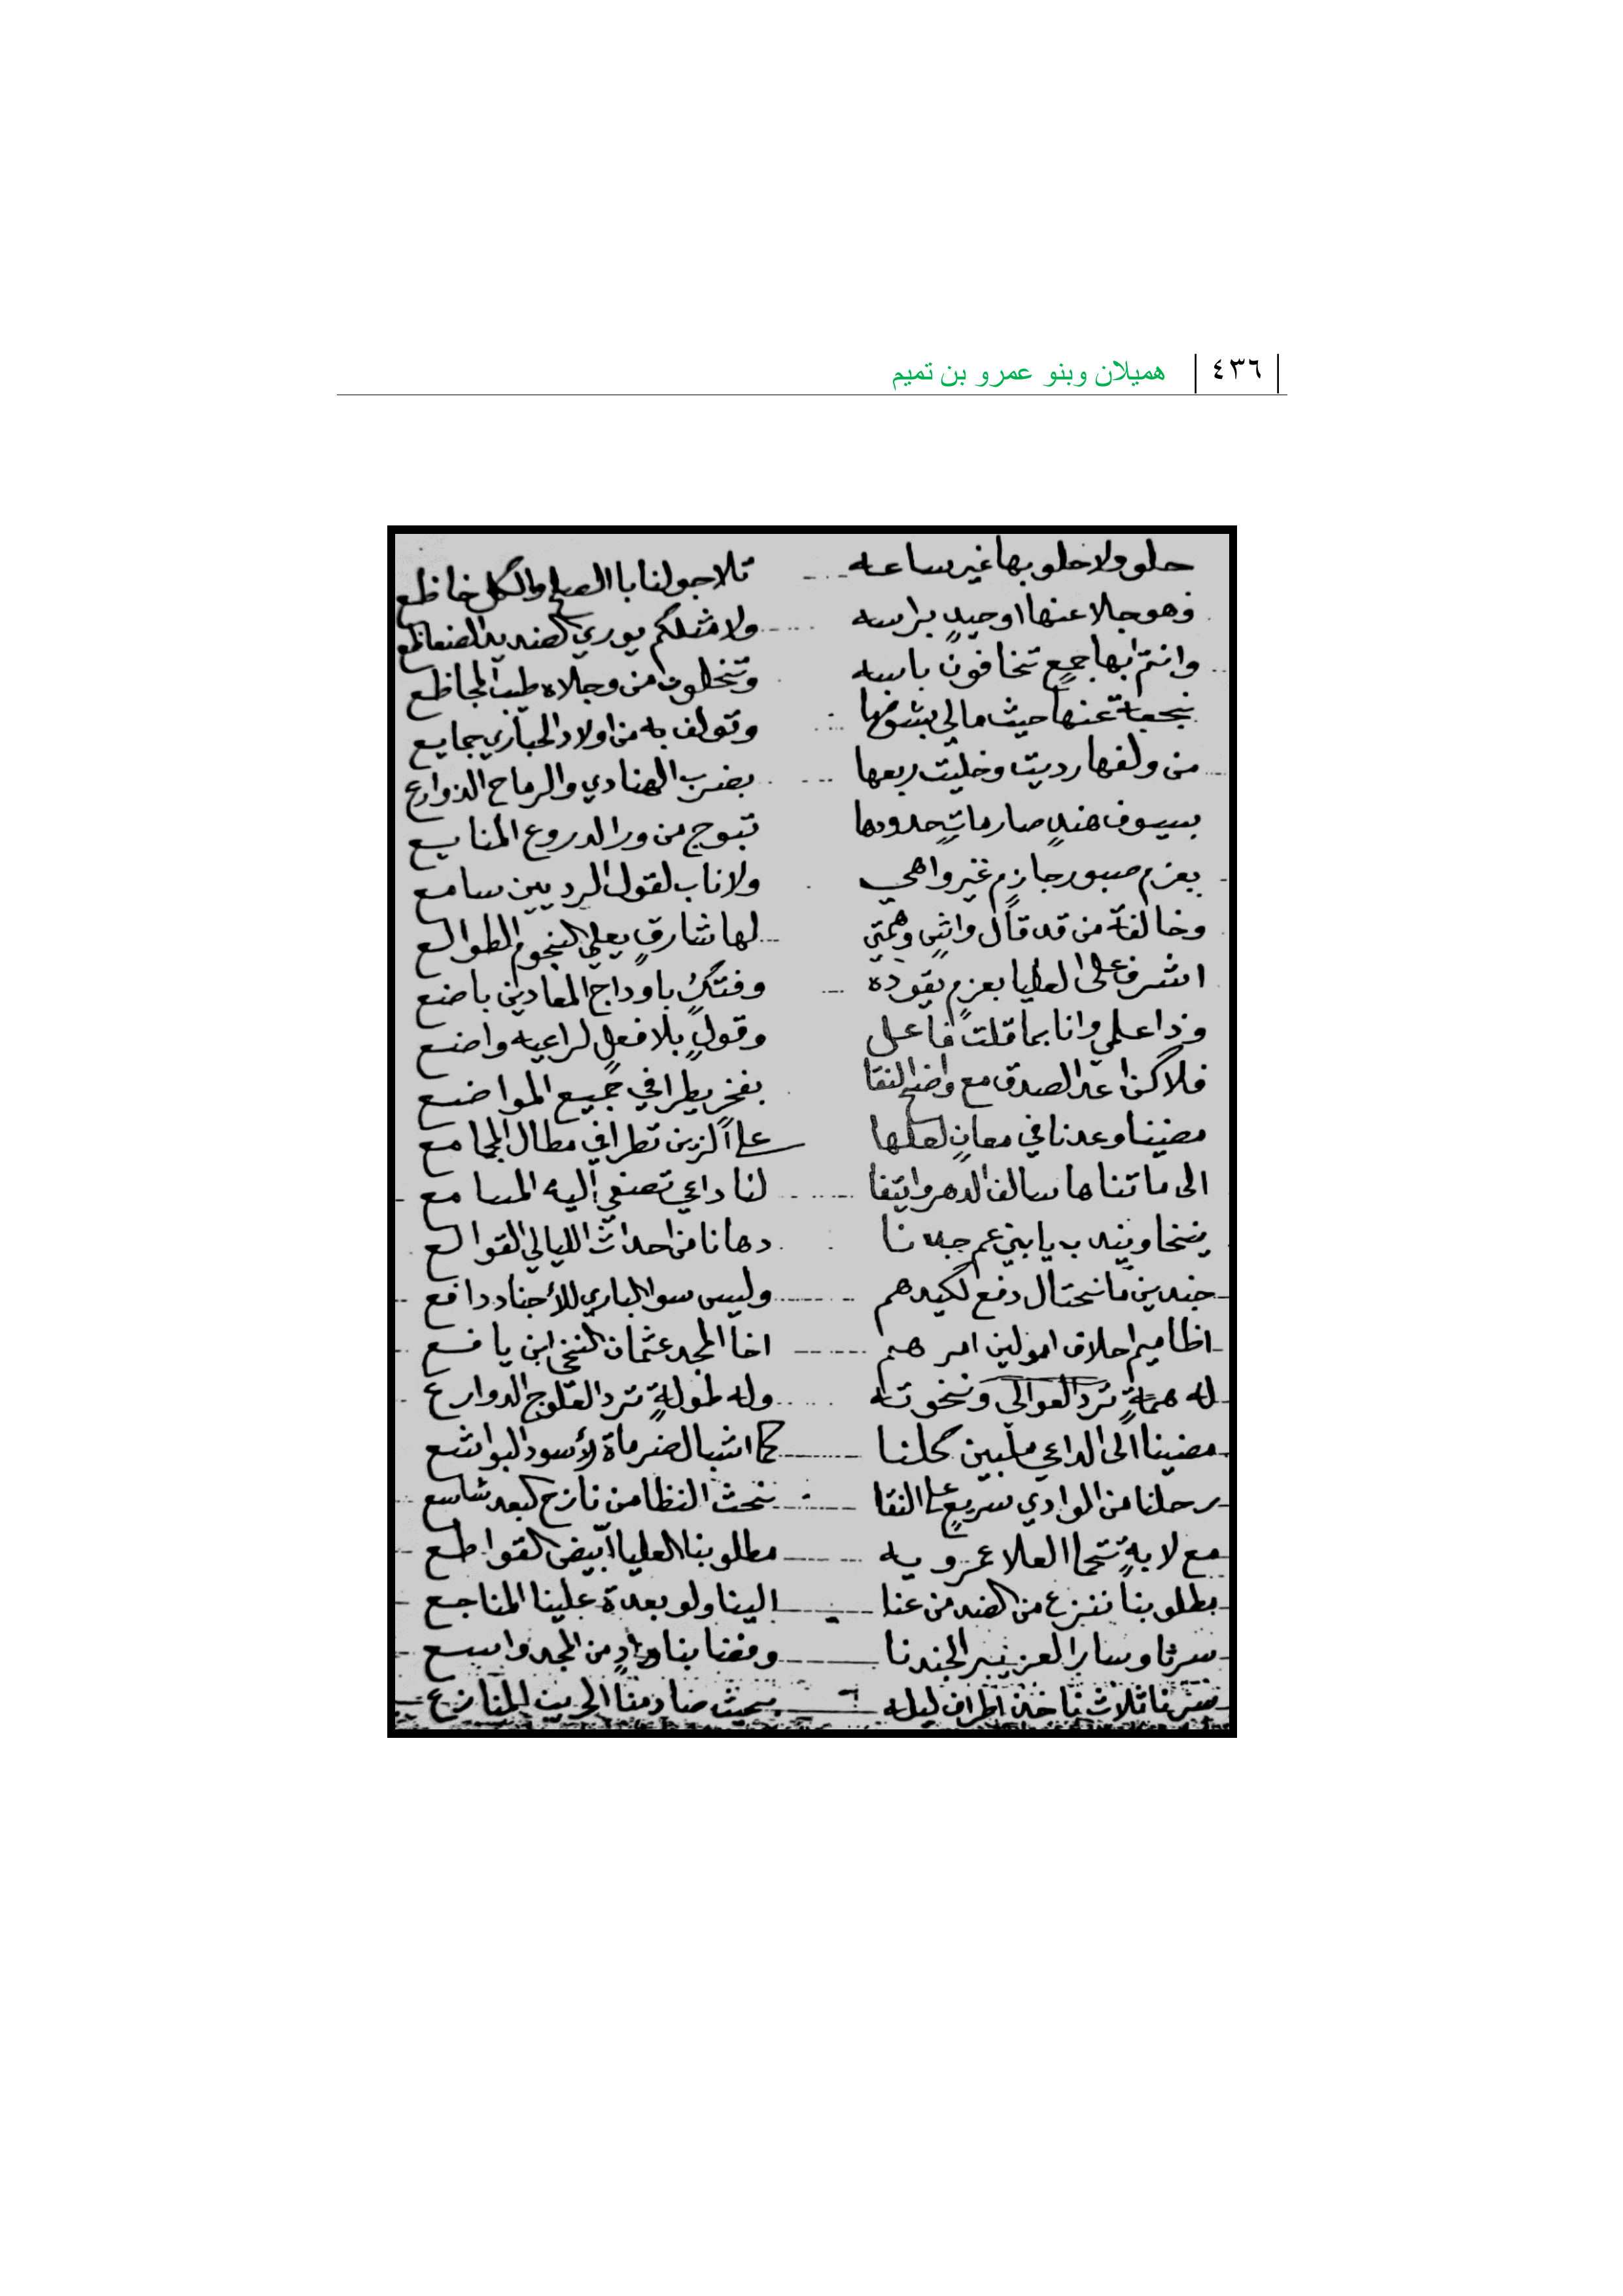 ٤٣٦ هميلان وبنو عمرو بن تميم
حلو ولا حلو بها غير ساعه تلاجو لنا باالصلح والكل خاظع
فهو جلا عنها اوحيدٍ براسه ولا مثلكم يوري الضد
وانتم ابها جمعٍ تخافون باسه وتنخلون من وجلاه طيب المجاظع
عنها حيث مالي بشوفها وتولف به من اولاد الحباري جمايع
من ولفها رديت وخليت ربعها بضرب الهنادي والرماح الذوارع
بسيوف هندٍ صارماتٍ حدودها تبوج من ورا الدروع المنايع
بعزم صبور جازمٍ غير واهي ولاناب لقول الرديين سامع
وخالفة من قد قال واثنٍ وهمتي لها شارفٍ يعلي النجوم الطوالع
اشرف على العليا بعزمٍ يقوده وفتكٍ باوداج المعادين باضع
وذا علمي وانا بما قلت فاعل وقولٍ بلا فعلٍ لراعيه واضع
فلا كن اعد الصدق مع واضح النقا بفخرٍ يطرا في جميع المواضع
مضينا وعدنا في معانٍ لعلها علا الزين تطرا في مطال المجامع
الى ما تناها سالف الدهر وانتفا لنا داعي تصغي اليه المسامع
ينخا ويندب يا بني عم جدنا دهانا من احداث الليالي القوالع
جندين ما نحتال دفع لكيدهم وليس سوا الباري للأجناد دافع
اظاميم احلاف امولين امرهم اخا المجد عثمان النخي ابن يافع
له همةٍ ترد العوالى ونخوته وله طولةٍ ترد العلوج الدوارع
مضينا الى الداعي ملبين كلنا كما اشبال ضرماة لأسود البواشع
رحلنا من الوادي سريعٍ على النقا نحث النظا من نازح البعد شاسع
مع لابةٍ تحما العلا عمرويه مطلوبنا العليا ابيض القواطع
بطلوبنا ننزع من الضد من عنا الينا ولو بعدة علينا المناجع
سرنا وسار العزيبر الجندنا وفضنا بنا وادٍ من المجد واسع
سرنا ثلاث ناخذ اطراف ليله بحيث صادمنا الحريب المنازع